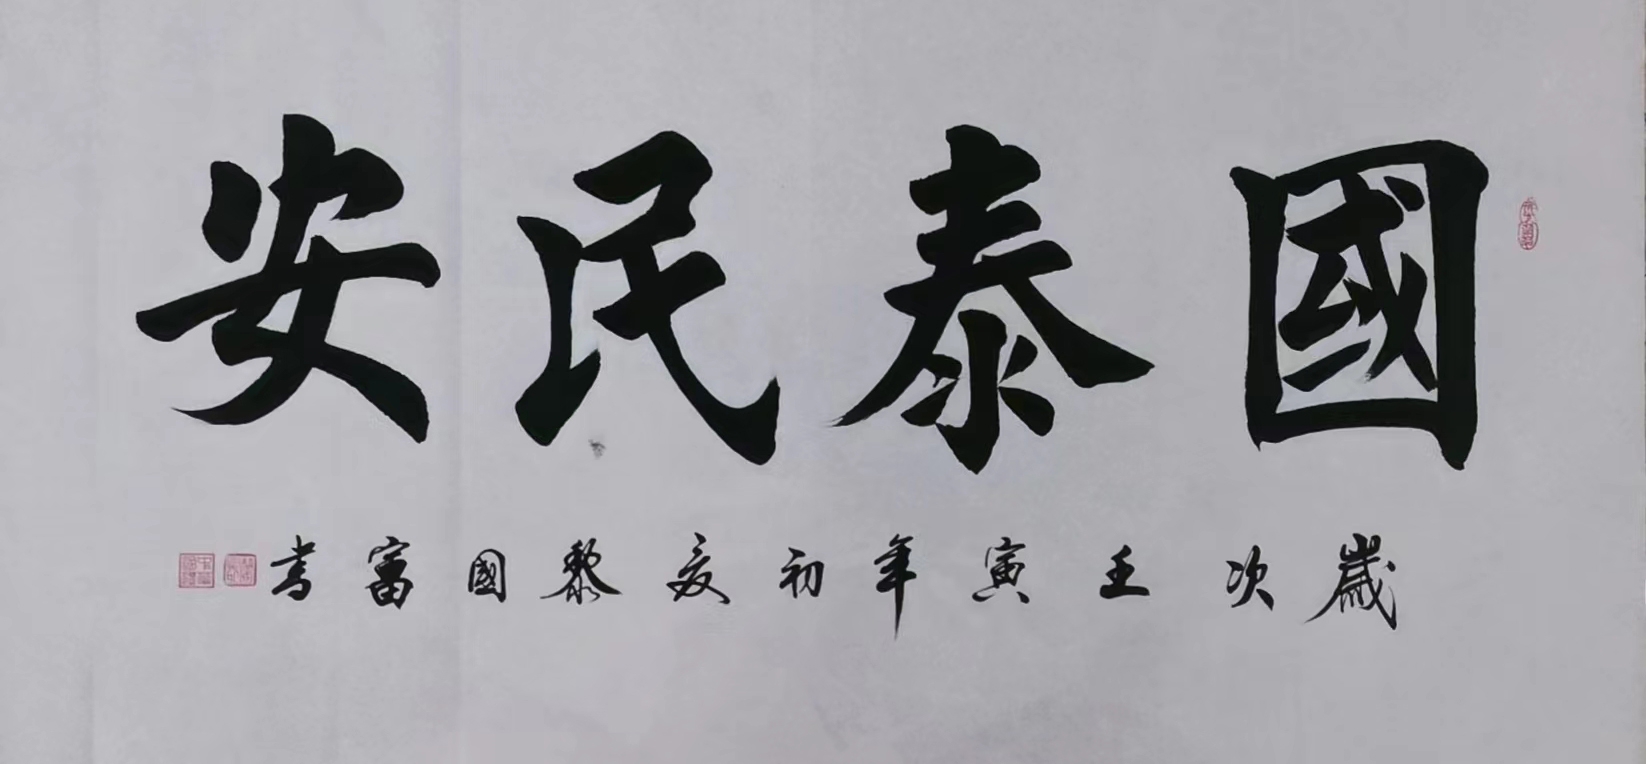 國泰民安
歲次壬寅年初夏黎國富書